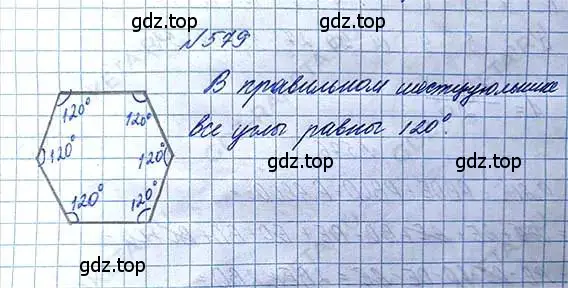 gdz.top
№579
В правильном шестиугольнике
все углы равны 120°.
120° 120°
gdz.top
120° 120°
gdz.top
120° 120°
gdz.top
gdz.top